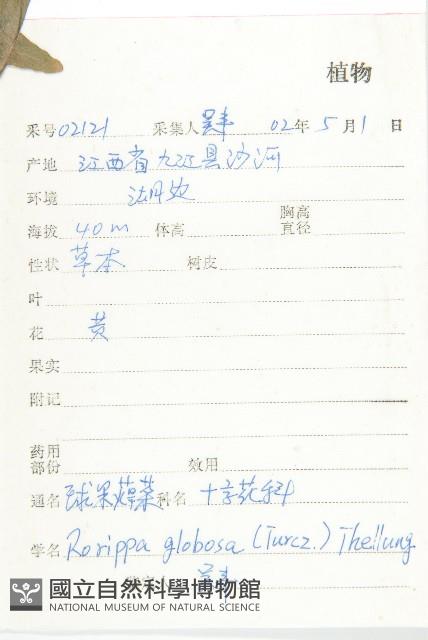 植物
采号 02121 采集人 吴丰 02年 5月1日
产地 江西省九江县沙河
环境
胸高
海拔 40m 体高 直径
性状 草本 树皮
叶
花 黄
果实
附记
药用
部份 效用
通名 球果蔊菜 科名 十字花科
学名 Rorippa globosa (Turcz.) Thellung
國立自然科學博物館
NATIONAL MUSEUM OF NATURAL SCIENCE